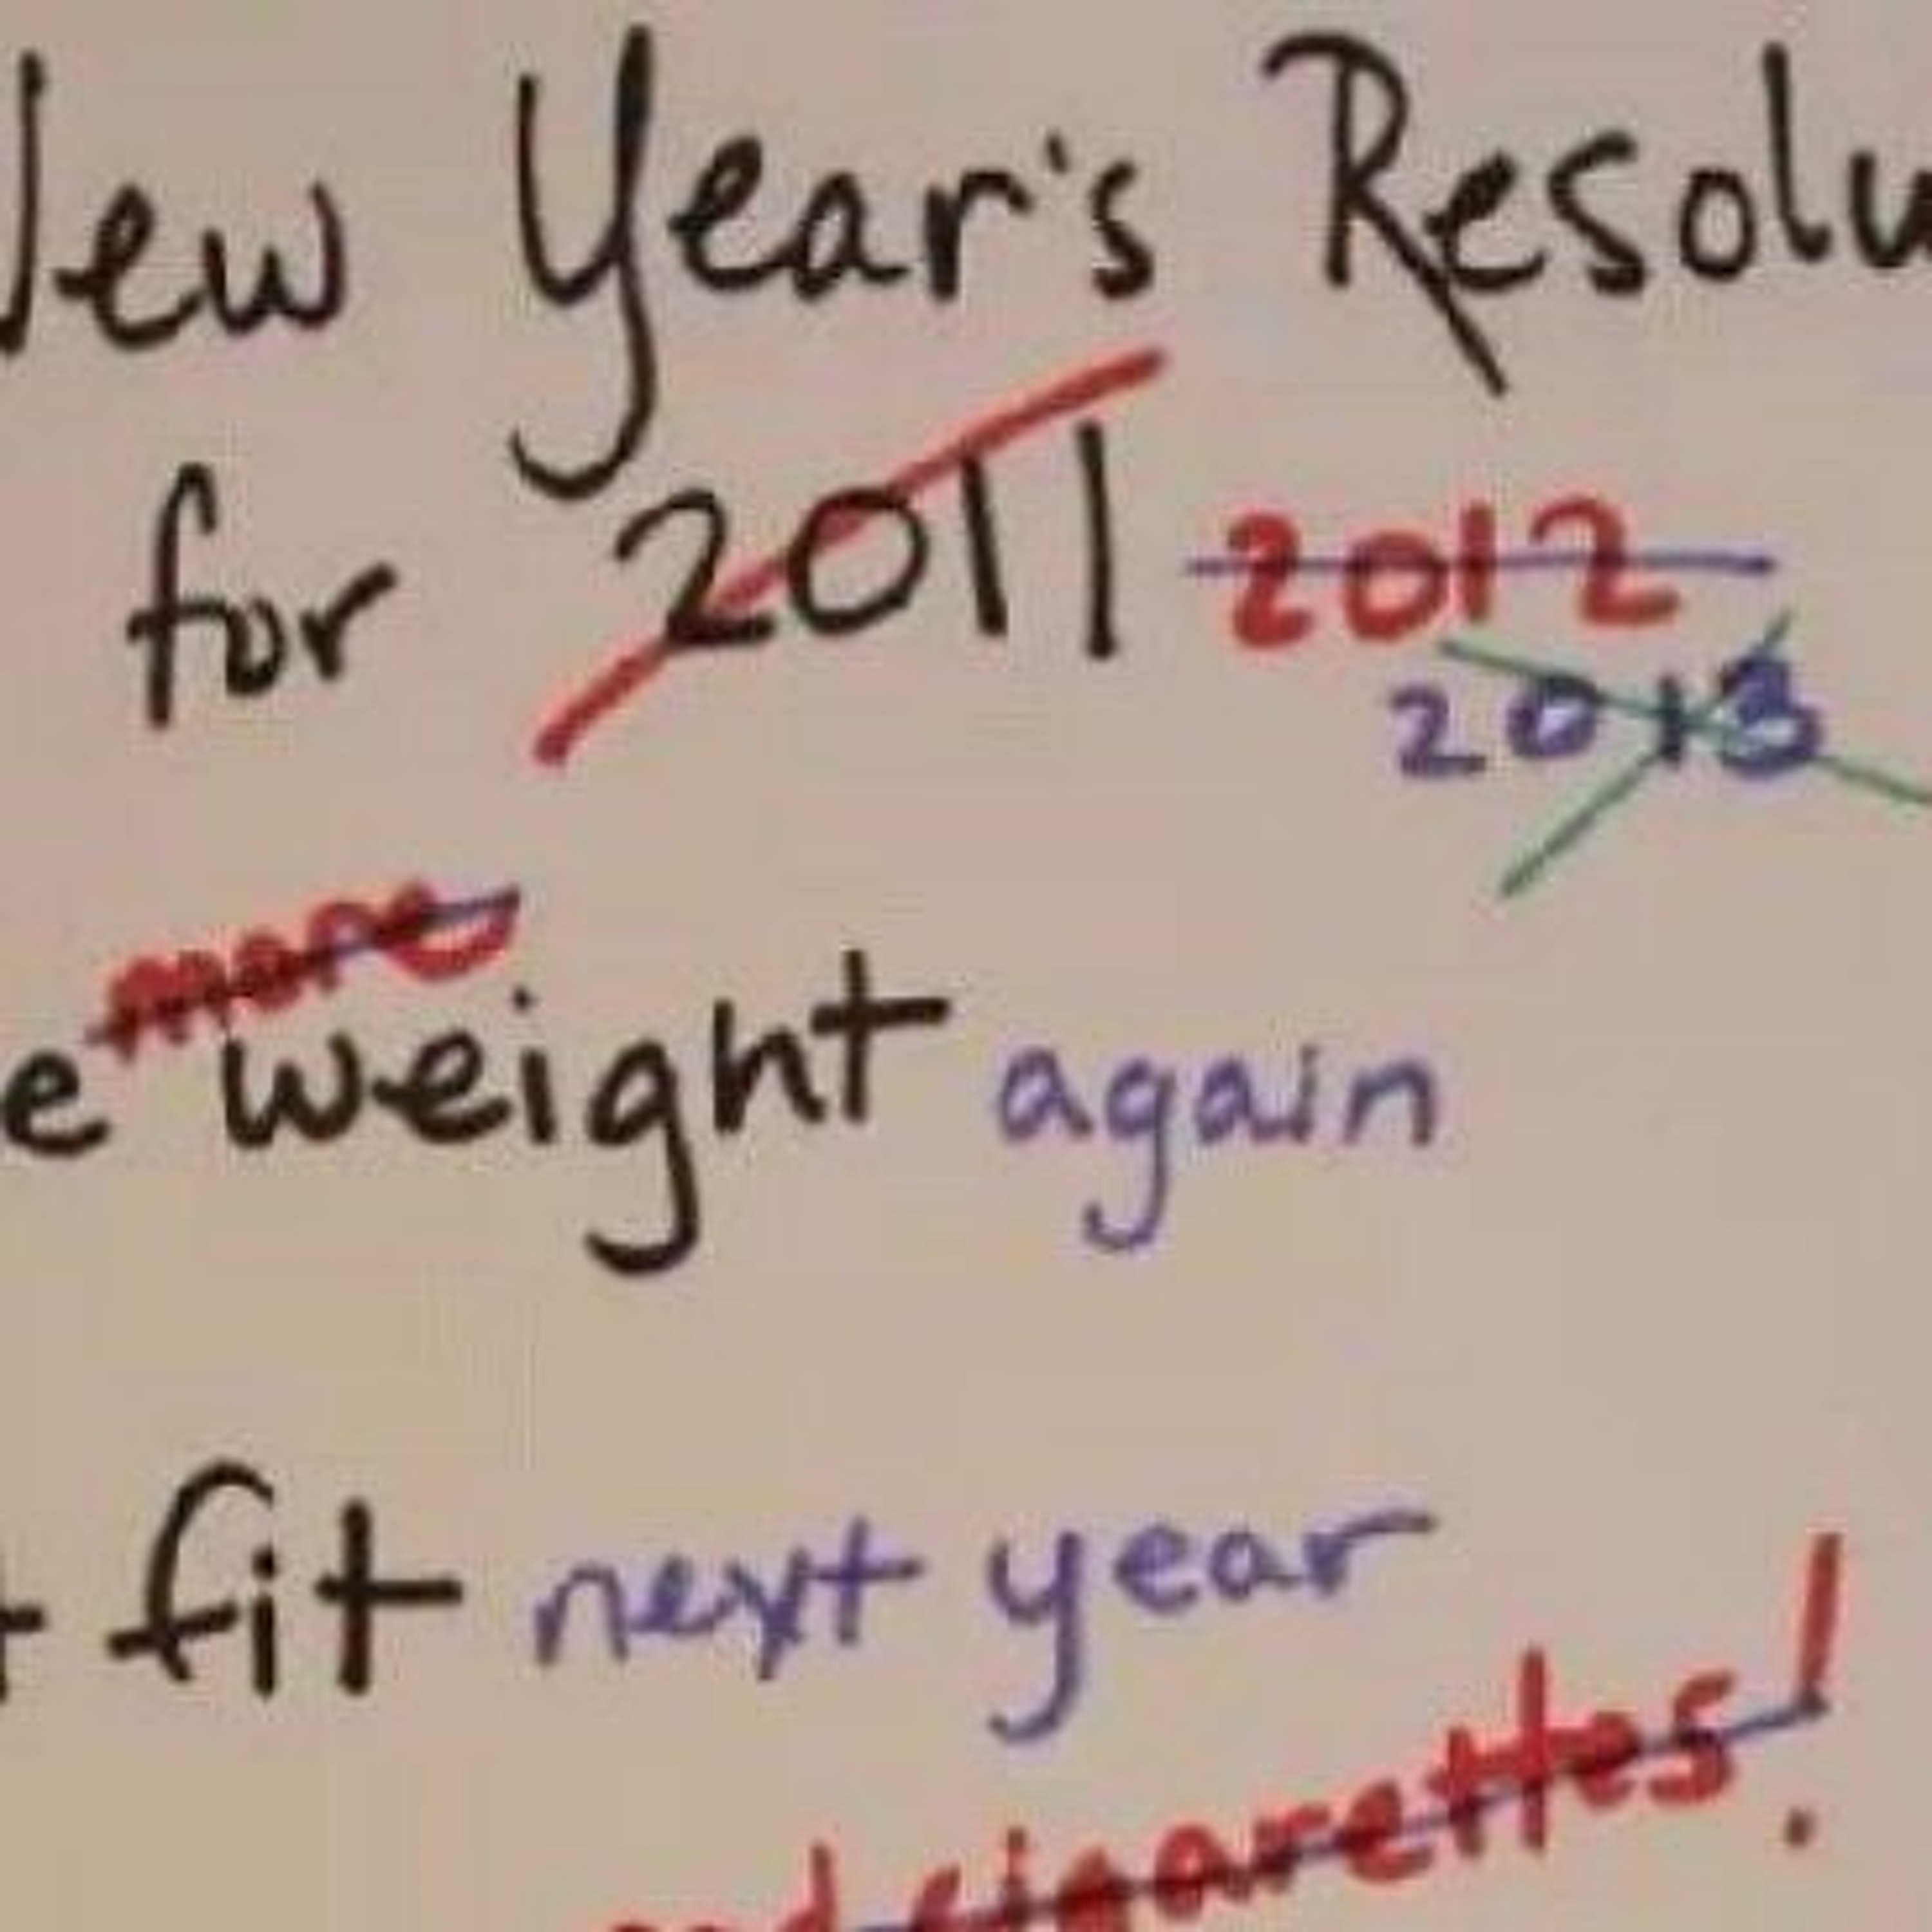 New Year's Resolu
for 2011 2012
2013
more
e weight again
t fit next year
and cigarettes!